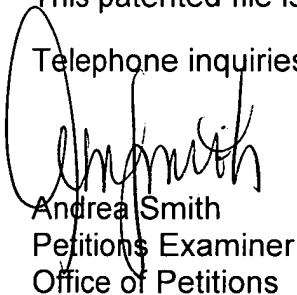 This patented file is
Telephone inquiries
Andrea Smith
Petitions Examiner
Office of Petitions